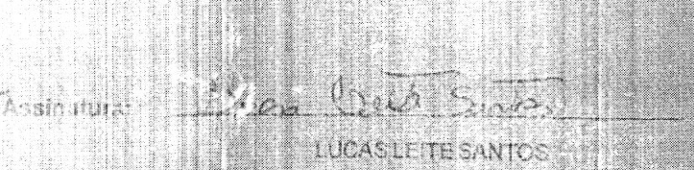 Assinatura: Lucas Leite Santos
LUCAS LEITE SANTOS